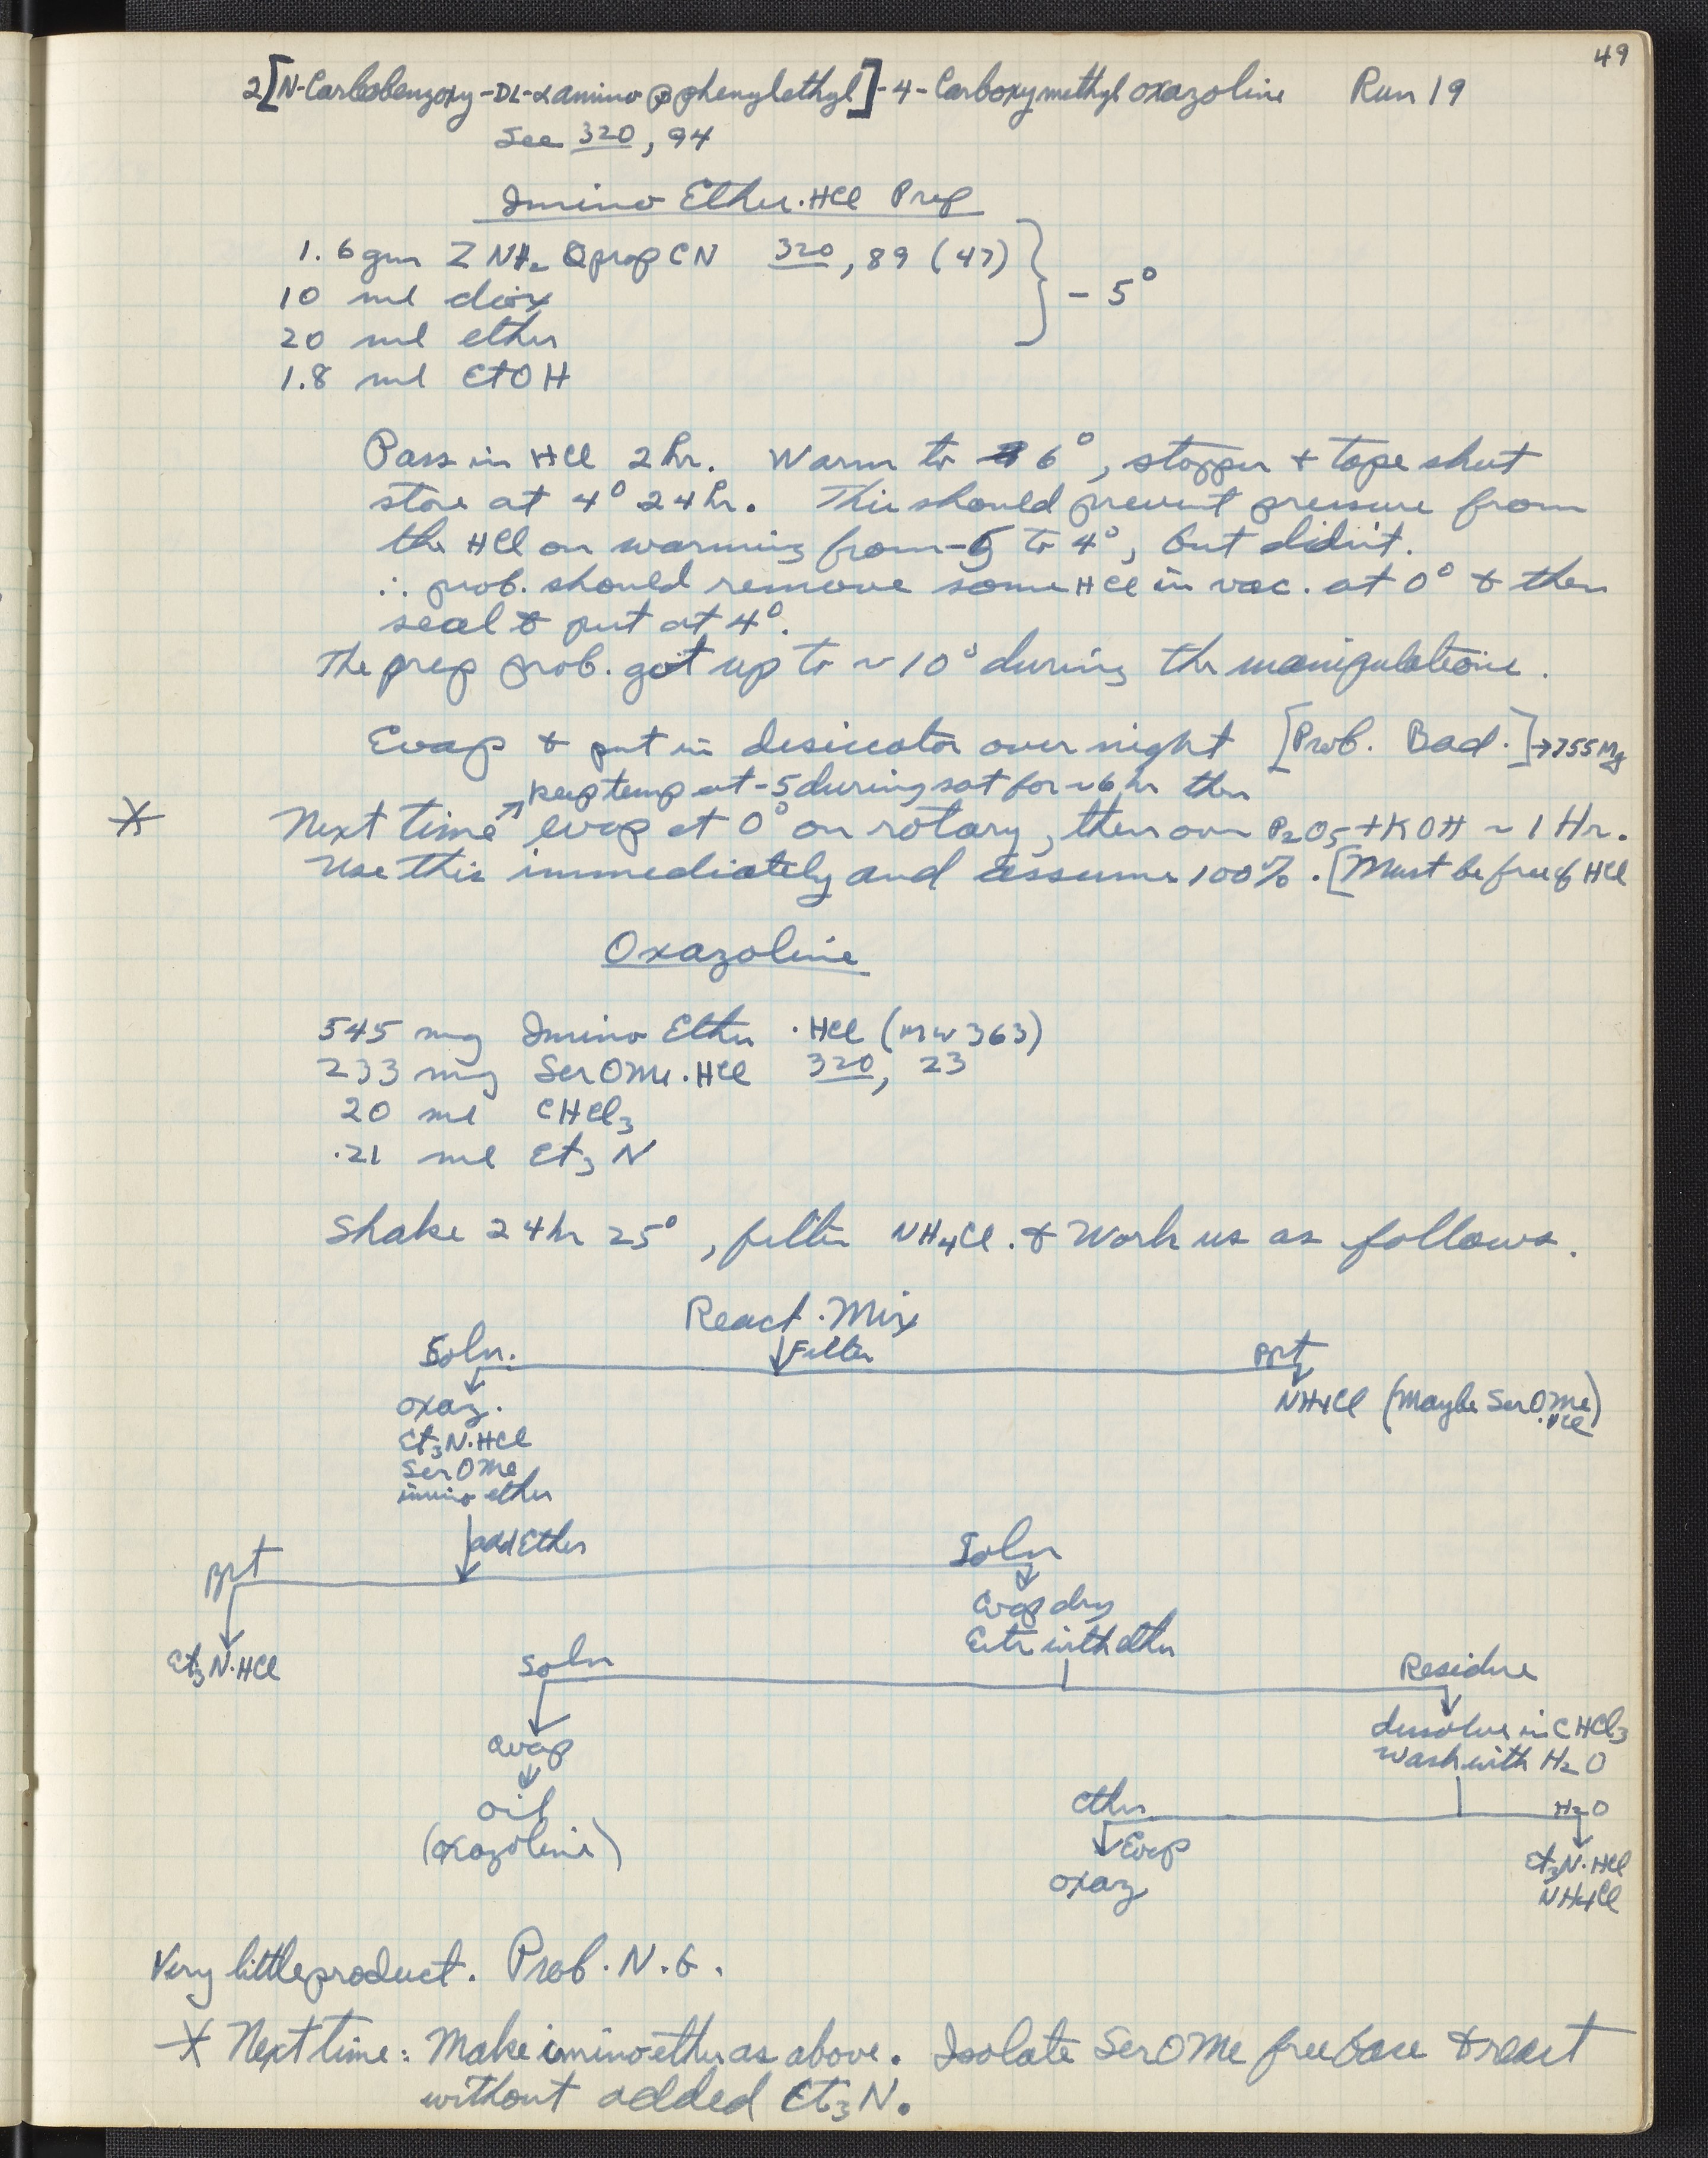 49
2[N-Carbobenzoxy-DL-αamino β phenylethyl]-4-Carboxymethyl oxazoline Run 19
See 320, 94
Imino Ether·HCl Prep
1.6 gm Z NH2 Φ prop CN 320, 89 (47)
10 ml diox
20 ml ether
1.8 ml EtOH
} -5°
Pass in HCl 2 hr. Warm to 6°, stopper + tape shut
store at 4° 24 hr. This should prevent pressure from
the HCl on warming from -5 to 4°, but didn't.
∴ prob. should remove some HCl in vac. at 0° & then
seal & put at 4°.
The prep prob. got up to ~10° during the manipulations.
Evap & put in desiccator over night [Prob. Bad.] → 755 Mg
keep temp at -5 during sat for ~6 hr then
* Next time ↗ evap at 0° on rotary, then over P2O5 + KOH ~ 1 Hr.
Use this immediately and assume 100%. [Must be free of HCl
Oxazoline
545 mg Imino Ether ·HCl (MW 363)
233 mg SerOMe·HCl 320, 23
20 ml CHCl3
.21 ml Et3N
Shake 24 hr 25°, filter NH4Cl. & Work us as follows.
React. Mix
Soln. ↓ Filter Ppt
oxaz. NH4Cl (Maybe SerOMe)
·HCl
Et3N·HCl
SerOMe
imino ether
add Ether
Ppt Soln
Evap dry
Extr with ether
Et3N·HCl Soln Residue
evap dissolve in CHCl3
wash with H2O
oil ether H2O
(oxazoline) Evap Et3N·HCl
oxaz NH4Cl
Very little product. Prob. N.G.
* Next time: Make imino ether as above. Isolate SerOMe free base & react
without added Et3N.